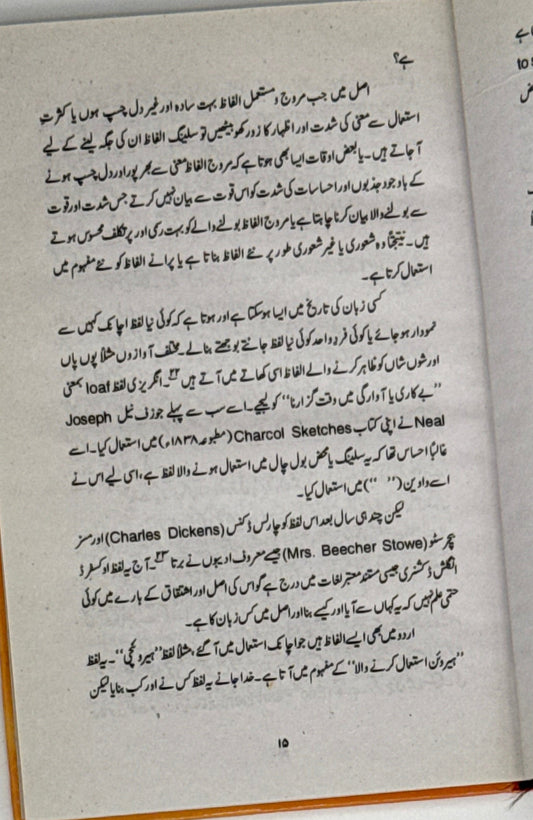 ہے؟
اصل میں جب مروج و مستعمل الفاظ بہت سادہ اور غیر دل چسپ ہوں یا کثرتِ
استعمال سے معنی کی شدت اور اظہار کا زور کھو بیٹھیں تو سلینگ الفاظ ان کی جگہ لینے کے لیے
آ جاتے ہیں۔ یا بعض اوقات ایسا بھی ہوتا ہے کہ مروج الفاظ معنی سے بھرپور اور دل چسپ ہونے
کے باوجود جذبوں اور احساسات کی شدت کو اس قوت سے بیان نہیں کرتے جس شدت اور قوت
سے بولنے والا بیان کرنا چاہتا ہے یا مروج الفاظ بولنے والے کو بہت رسمی اور پرتکلف محسوس ہوتے
ہیں۔ نتیجتاً وہ شعوری یا غیر شعوری طور پر نئے الفاظ بناتا ہے یا پرانے الفاظ کو نئے مفہوم میں
استعمال کرتا ہے۔
کسی زبان کی تاریخ میں ایسا ہو سکتا ہے اور ہوتا ہے کہ کوئی نیا لفظ اچانک کہیں سے
نمودار ہو جائے یا کوئی فردِ واحد کوئی نیا لفظ جانتے بوجھتے بنا لے۔ مختلف آوازوں مثلاً پوں پاں
اور شوں شاں کو ظاہر کرنے والے الفاظ اسی کھاتے میں آتے ہیں ۲۲؎۔ انگریزی لفظ loaf بمعنی
”بے کاری یا آوارگی میں وقت گزارنا“ کو لیجیے۔ اسے سب سے پہلے جوزف نیل Joseph
Neal نے اپنی کتاب Charcol Sketches (مطبوعہ ۱۸۳۸ء) میں استعمال کیا۔ اسے
غالباً احساس تھا کہ یہ سلینگ یا محض بول چال میں استعمال ہونے والا لفظ ہے، اسی لیے اس نے
اسے واوین (” “) میں استعمال کیا۔
لیکن چند ہی سال بعد اس لفظ کو چارلس ڈکنس (Charles Dickens) اور مسز
بیچر سٹو (Mrs. Beecher Stowe) جیسے معروف ادیبوں نے برتا ۲۳؎۔ آج یہ لفظ اوکسفرڈ
انگلش ڈکشنری جیسی مستند و معتبر لغات میں درج ہے گو اس کی اصل اور اشتقاق کے بارے میں کوئی
حتمی علم نہیں کہ یہ کہاں سے آیا اور کیسے بنا اور اصل میں کس زبان کا ہے۔
اردو میں بھی ایسے الفاظ ہیں جو اچانک استعمال میں آ گئے، مثلاً لفظ ”ہیرونچی“۔ یہ لفظ
”ہیروئن استعمال کرنے والا“ کے مفہوم میں آتا ہے۔ خدا جانے یہ لفظ کس نے اور کب بنایا لیکن
۱۵